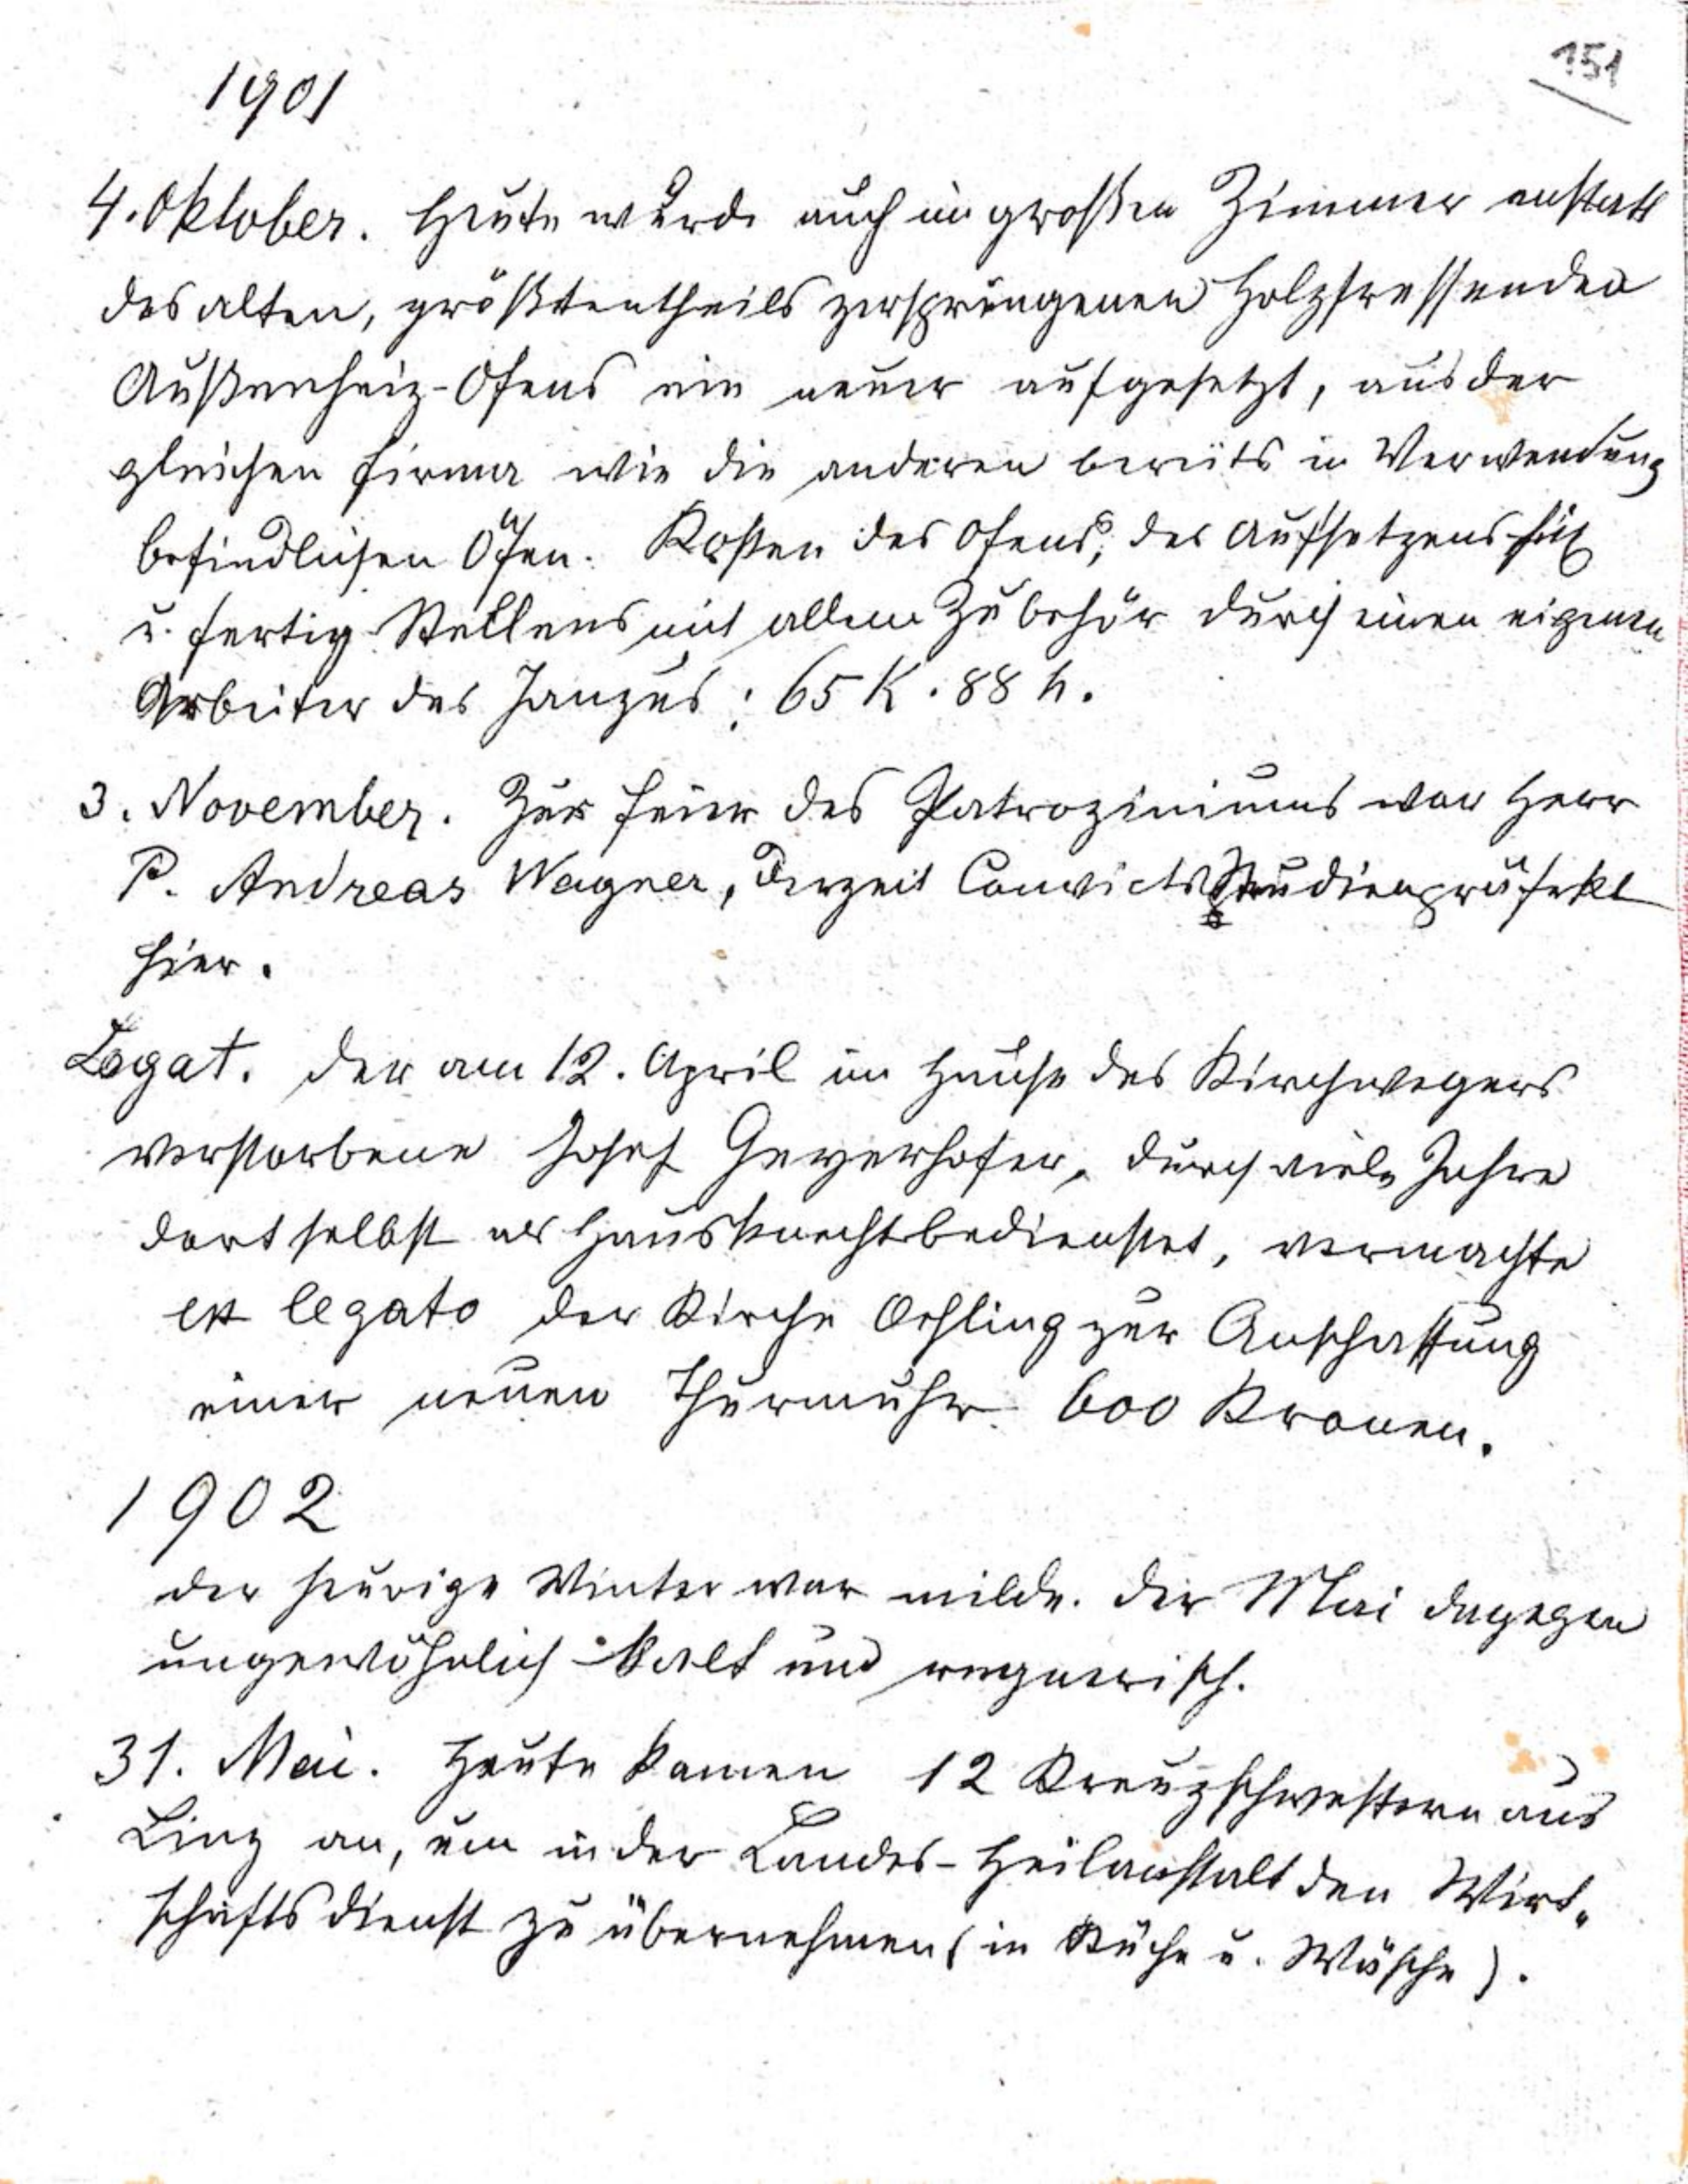 151
1901
4. Oktober. Heute wurde auch im großen Zimmer anstatt
des alten, größtentheils zersprungenen Holzfressenden
Außenheiz-Ofens ein neuer aufgesetzt, aus der
gleichen Firma wie die anderen bereits in Verwendung
befindlichen Öfen. Kosten des Ofens, des Aufsetzens
u. fertig Stellens mit allem Zubehör durch einen eigenen
Arbeiter des : 65 K. 88 h.
3. November. Zur Feier des Patroziniums war Herr
P. Andreas Wagner, derzeit Convicts Studienpräfekt
hier.
Legat. Der am 12. April im Hause des Kirchwegers
verstorbene Josef Geyerhofer, durch viele Jahre
dortselbst als Hausknecht bedienstet, vermachte
ex legato der Kirche Oehling zur Anschaffung
einer neuen Thurmuhr 600 Kronen.
1902
Der heurige Winter war milde. Der Mai dagegen
ungewöhnlich kalt und regnerisch.
31. Mai. Heute kamen 12 Kreuzschwestern aus
Linz an, um in der Landes-Heilanstalt den Wirt-
schaftsdienst zu übernehmen (in Küche u. Wäsche).